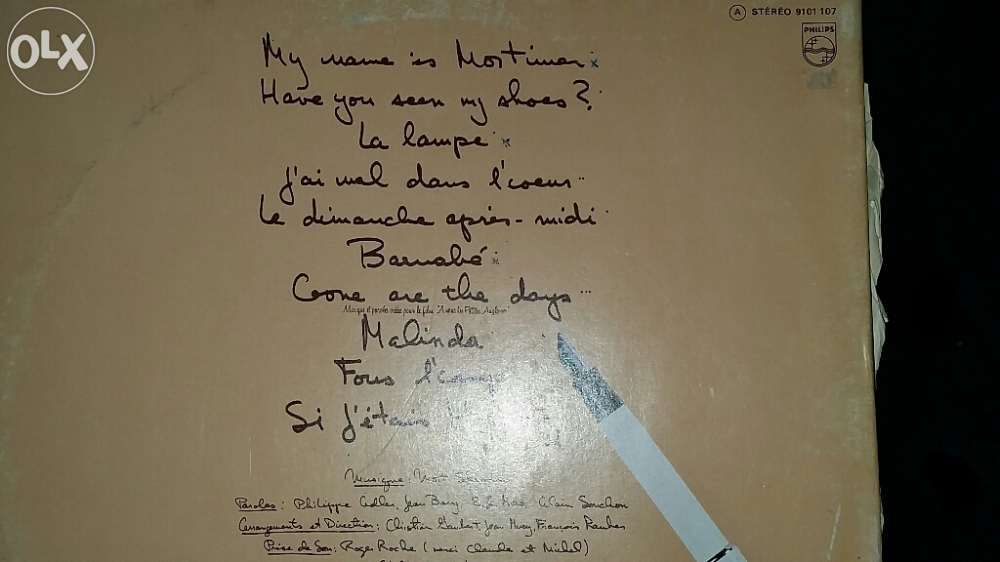 OLX
Ⓐ STÉRÉO 9101 107
PHILIPS
My name is Mortimer
Have you seen my shoes?
La lampe
J'ai mal dans l'coeur
Le dimanche après-midi
Barnabé
Gone are the days
Malinda
Fous l'
Si j'étais
Musique: Mort
Paroles: Philippe Adler, Jean Alain Souchon
Arrangements et Direction: Christian Gaubert, Jean Musy, François Rauber
Prise de Son: Roger Roche (merci Claude et Michel)